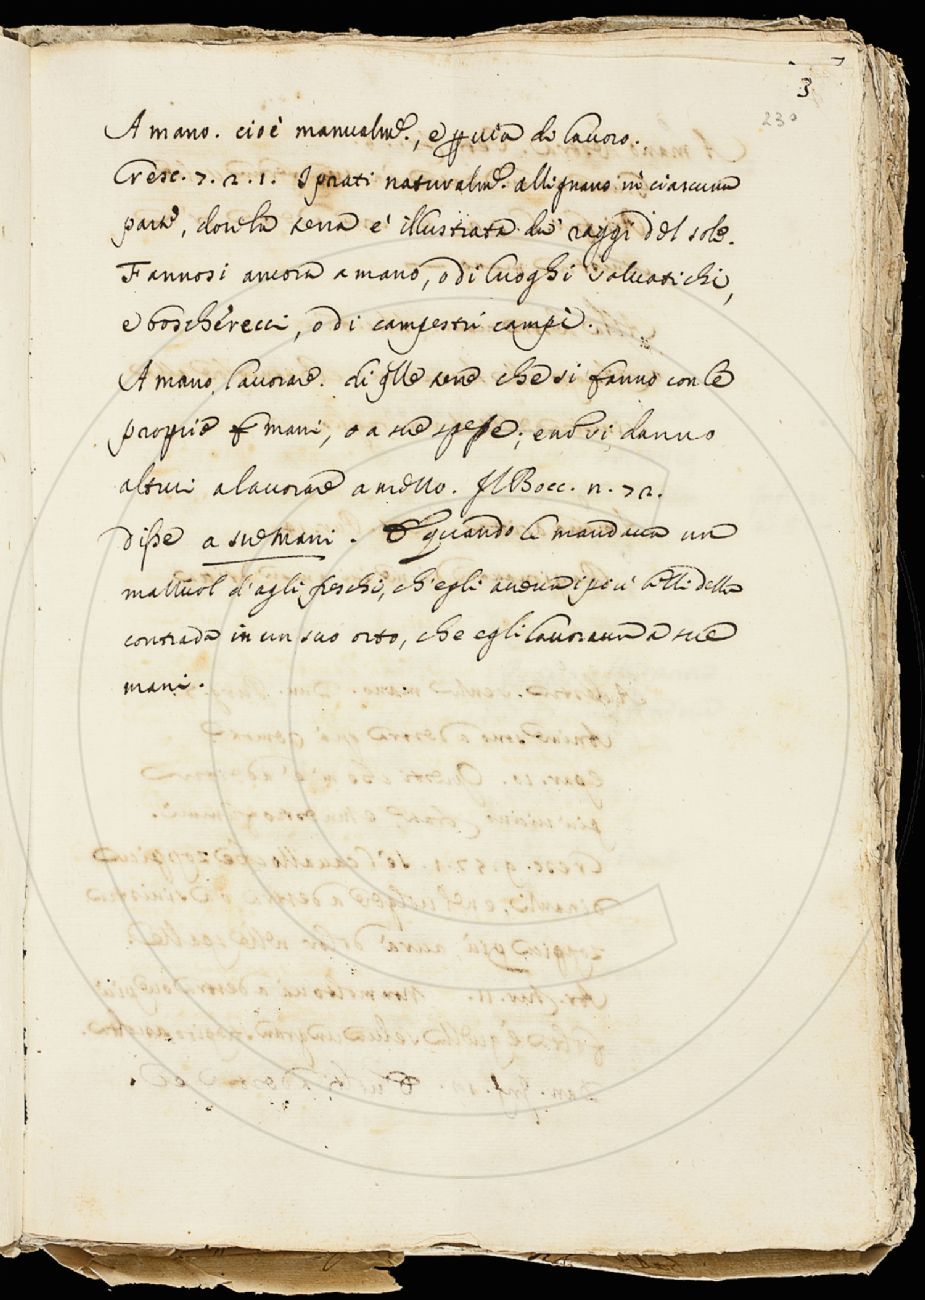 3
230
A mano. cioè manualm.e, e p via di lavoro.
Cresc. 7. 2. 1. I prati naturalm.e allignano in ciascuna
parte, dove la terra è illustrata da' raggi del sole.
Fannosi ancora a mano, o di luoghi salvatichi,
e boscherecci, o di campestri campi.
A mano, lavorare. di qlle terre che si fanno con le
proprie mani, o a sue spese; e nõ vi danno
altrui a lavorare a mezzo. Il Bocc. n. 72.
disse a sue mani. E quando le mandava un
mazzuol d'agli freschi, ch'egli aveva i più belli della
contrada in un suo orto, che egli lavorava a sue
mani.